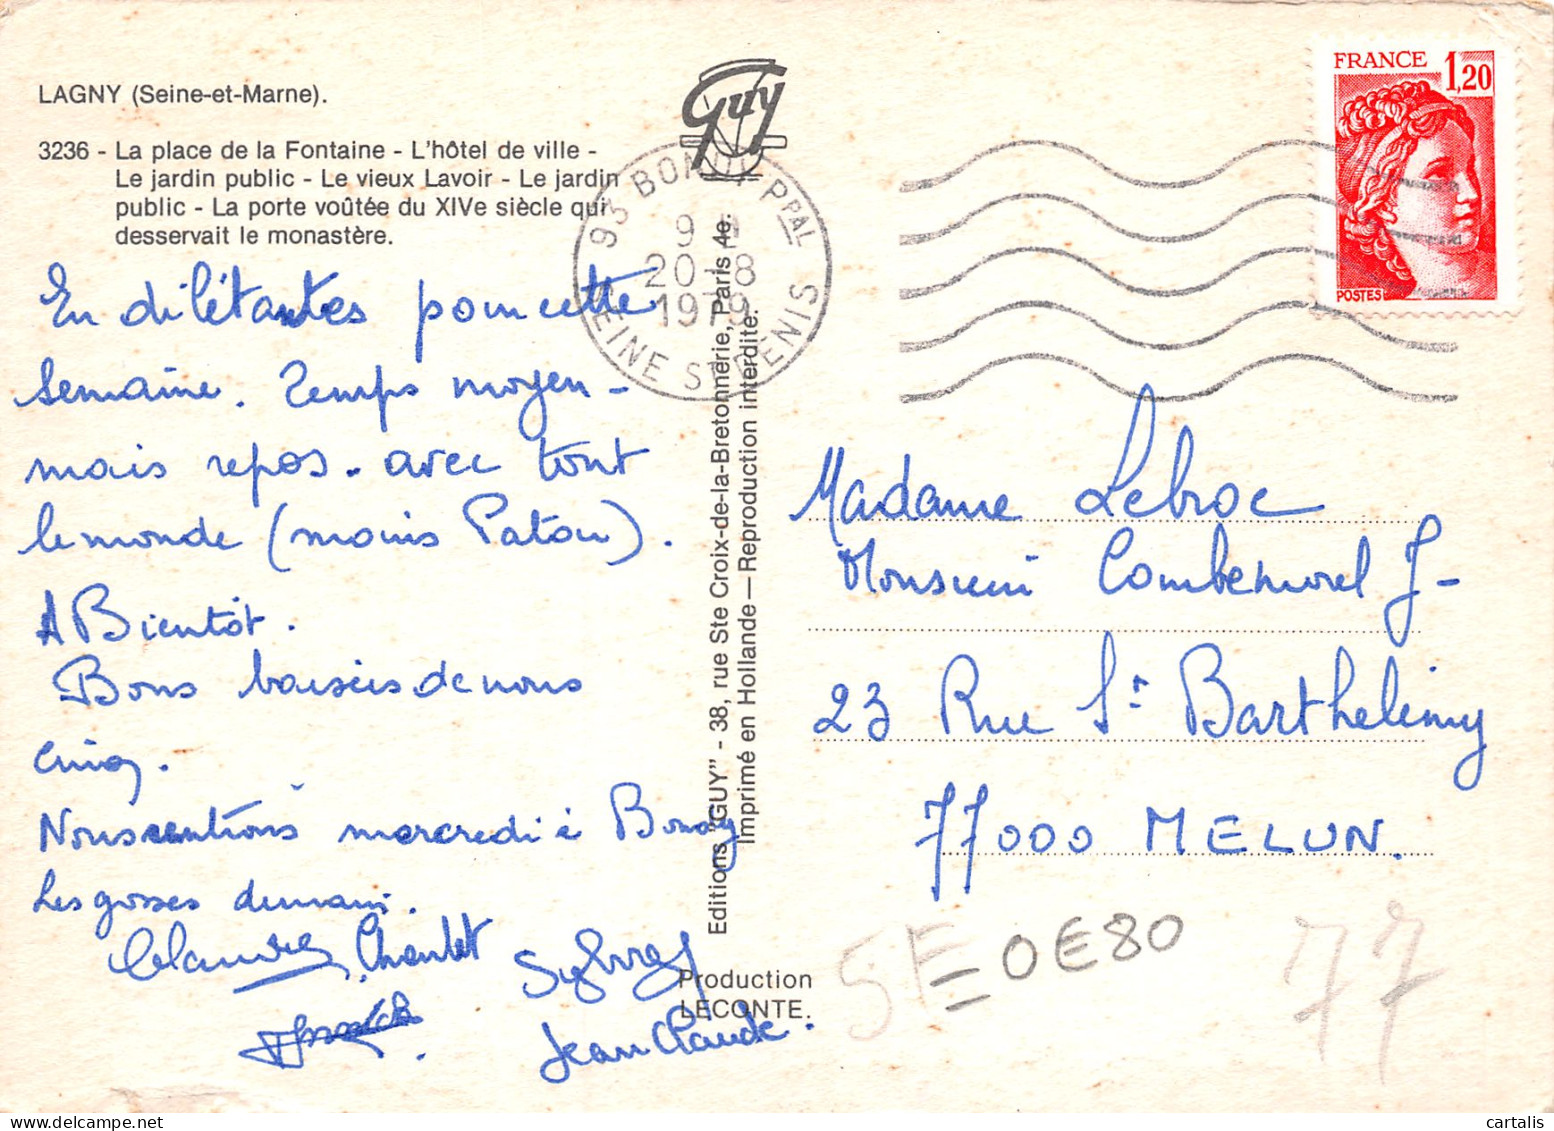 LAGNY (Seine-et-Marne).
3236 - La place de la Fontaine - L'hôtel de ville -
Le jardin public - Le vieux Lavoir - Le jardin
public - La porte voûtée du XIVe siècle qui
desservait le monastère.
Guy
93 BONDY PPAL
20-8
1979
SEINE ST DENIS
FRANCE 1,20
POSTES
En dilétantes pour cette
semaine. Temps moyen -
mais repos. avec tout
le monde (moins Patou).
A Bientôt.
Bons baisers de nous
cinq.
Nous rentrons mercredi à Bondy
Les gosses demain.
Chantal
Sylvie
Jean Claude.
Editions "GUY" - 38, rue Ste Croix-de-la-Bretonnerie, Paris 4e.
Imprimé en Hollande — Reproduction interdite.
Production
LECONTE.
Madame Lebroc
Monsieur Combemorel J-
23 Rue St Barthelemy
77000 MELUN.
5F
0E80
77
cartalis